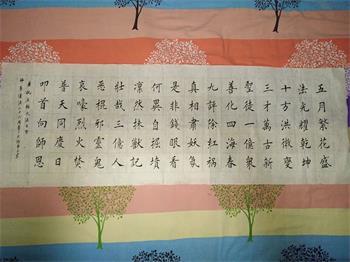 五月繁花盛
法光耀乾坤
十方洪微變
三才萬古新
聖徒一億眾
善化四海春
九評除紅禍
真相肅妖氛
是非錢眼看
何異自掘墳
凜然抹獸記
壯哉三億人
惡棍邪靈鬼
哀嚎烈火焚
普天同慶日
叩首向師恩